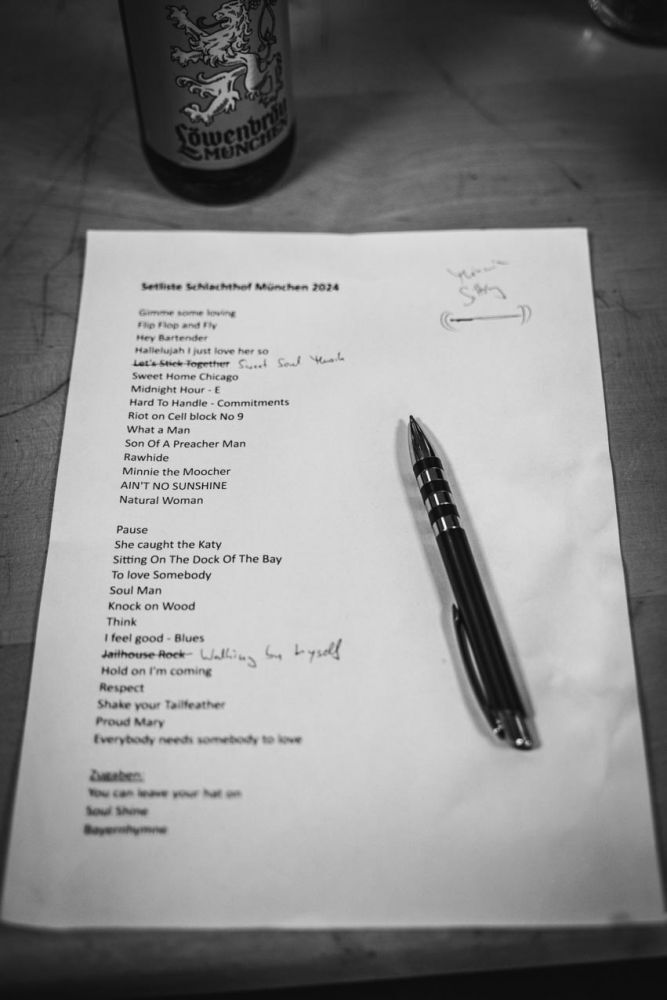 Löwenbräu
MÜNCHEN
Setliste Schlachthof München 2024
Gimme some loving
Flip Flop and Fly
Hey Bartender
Hallelujah I just love her so
Let's Stick Together Sweet Soul
Sweet Home Chicago
Midnight Hour - E
Hard To Handle - Commitments
Riot on Cell block No 9
What a Man
Son Of A Preacher Man
Rawhide
Minnie the Moocher
AIN'T NO SUNSHINE
Natural Woman
Pause
She caught the Katy
Sitting On The Dock Of The Bay
To love Somebody
Soul Man
Knock on Wood
Think
I feel good - Blues
Jailhouse Rock Walking by Myself
Hold on I'm coming
Respect
Shake your Tailfeather
Proud Mary
Everybody needs somebody to love
Zugaben:
You can leave your hat on
Soul Shine
Bayernhymne